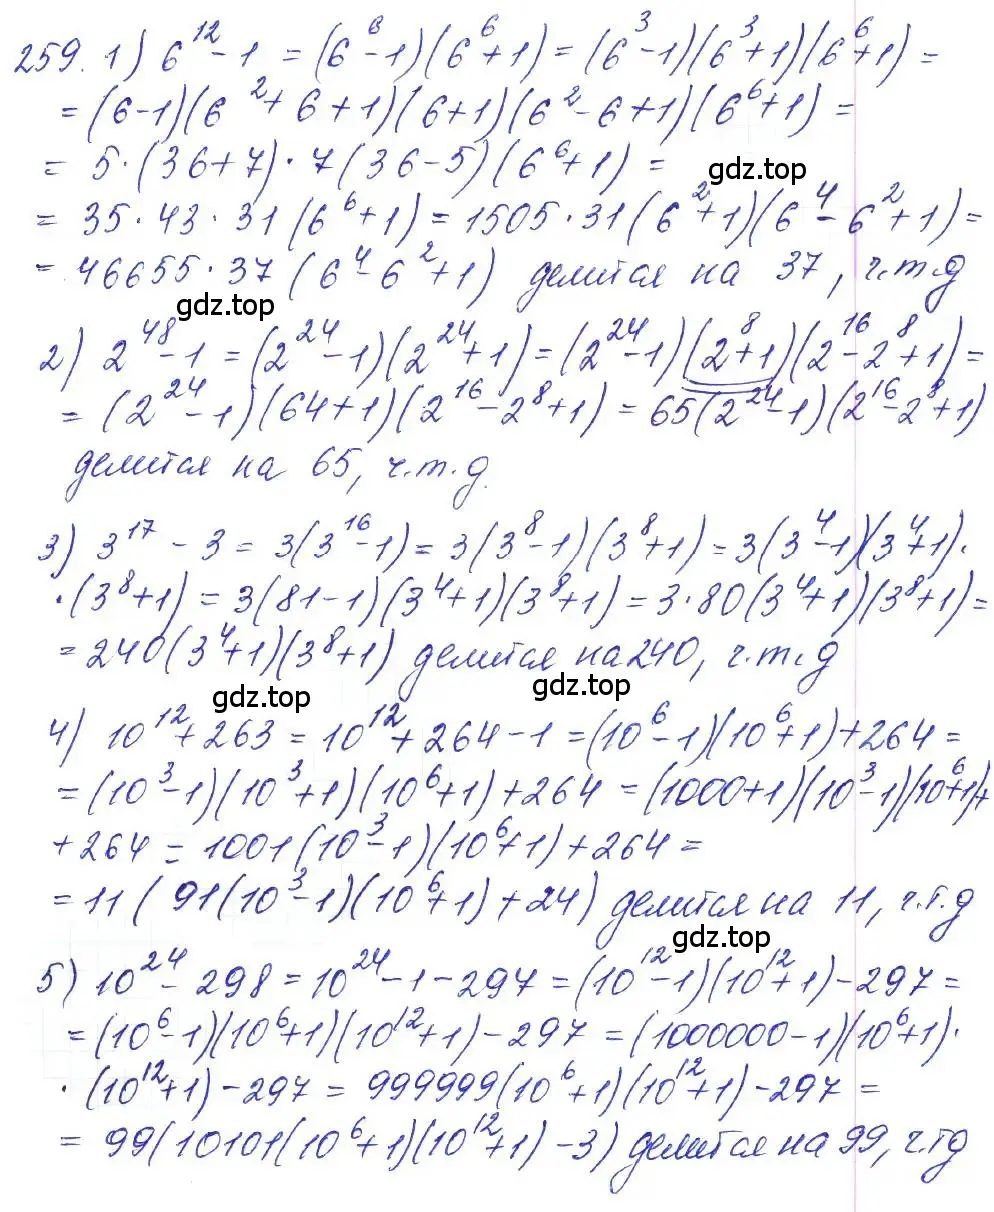 259. 1) 6¹² - 1 = (6⁶ - 1)(6⁶ + 1) = (6³ - 1)(6³ + 1)(6⁶ + 1) =
= (6 - 1)(6² + 6 + 1)(6 + 1)(6² - 6 + 1)(6⁶ + 1) =
= 5 · (36 + 7) · 7 (36 - 5)(6⁶ + 1) =
gdz.top
= 35 · 43 · 31 (6⁶ + 1) = 1505 · 31 (6² + 1)(6⁴ - 6² + 1) =
= 46655 · 37 (6⁴ - 6² + 1) делится на 37, ч.т.д
gdz.top
2) 2⁴⁸ - 1 = (2²⁴ - 1)(2²⁴ + 1) = (2²⁴ - 1)(2⁸ + 1)(2¹⁶ - 2⁸ + 1) =
= (2²⁴ - 1)(64 + 1)(2¹⁶ - 2⁸ + 1) = 65(2²⁴ - 1)(2¹⁶ - 2⁸ + 1)
делится на 65, ч.т.д.
3) 3¹⁷ - 3 = 3(3¹⁶ - 1) = 3(3⁸ - 1)(3⁸ + 1) = 3(3⁴ - 1)(3⁴ + 1) ·
· (3⁸ + 1) = 3(81 - 1)(3⁴ + 1)(3⁸ + 1) = 3 · 80(3⁴ + 1)(3⁸ + 1) =
= 240(3⁴ + 1)(3⁸ + 1) делится на 240, ч.т.д
gdz.top gdz.top
4) 10¹² + 263 = 10¹² + 264 - 1 = (10⁶ - 1)(10⁶ + 1) + 264 =
= (10³ - 1)(10³ + 1)(10⁶ + 1) + 264 = (1000 + 1)(10³ - 1)(10⁶ + 1) +
+ 264 = 1001(10³ - 1)(10⁶ + 1) + 264 =
= 11(91(10³ - 1)(10⁶ + 1) + 24) делится на 11, ч.т.д
gdz.top
5) 10²⁴ - 298 = 10²⁴ - 1 - 297 = (10¹² - 1)(10¹² + 1) - 297 =
= (10⁶ - 1)(10⁶ + 1)(10¹² + 1) - 297 = (1000000 - 1)(10⁶ + 1) ·
· (10¹² + 1) - 297 = 999999(10⁶ + 1)(10¹² + 1) - 297 =
= 99(10101(10⁶ + 1)(10¹² + 1) - 3) делится на 99, ч.тд